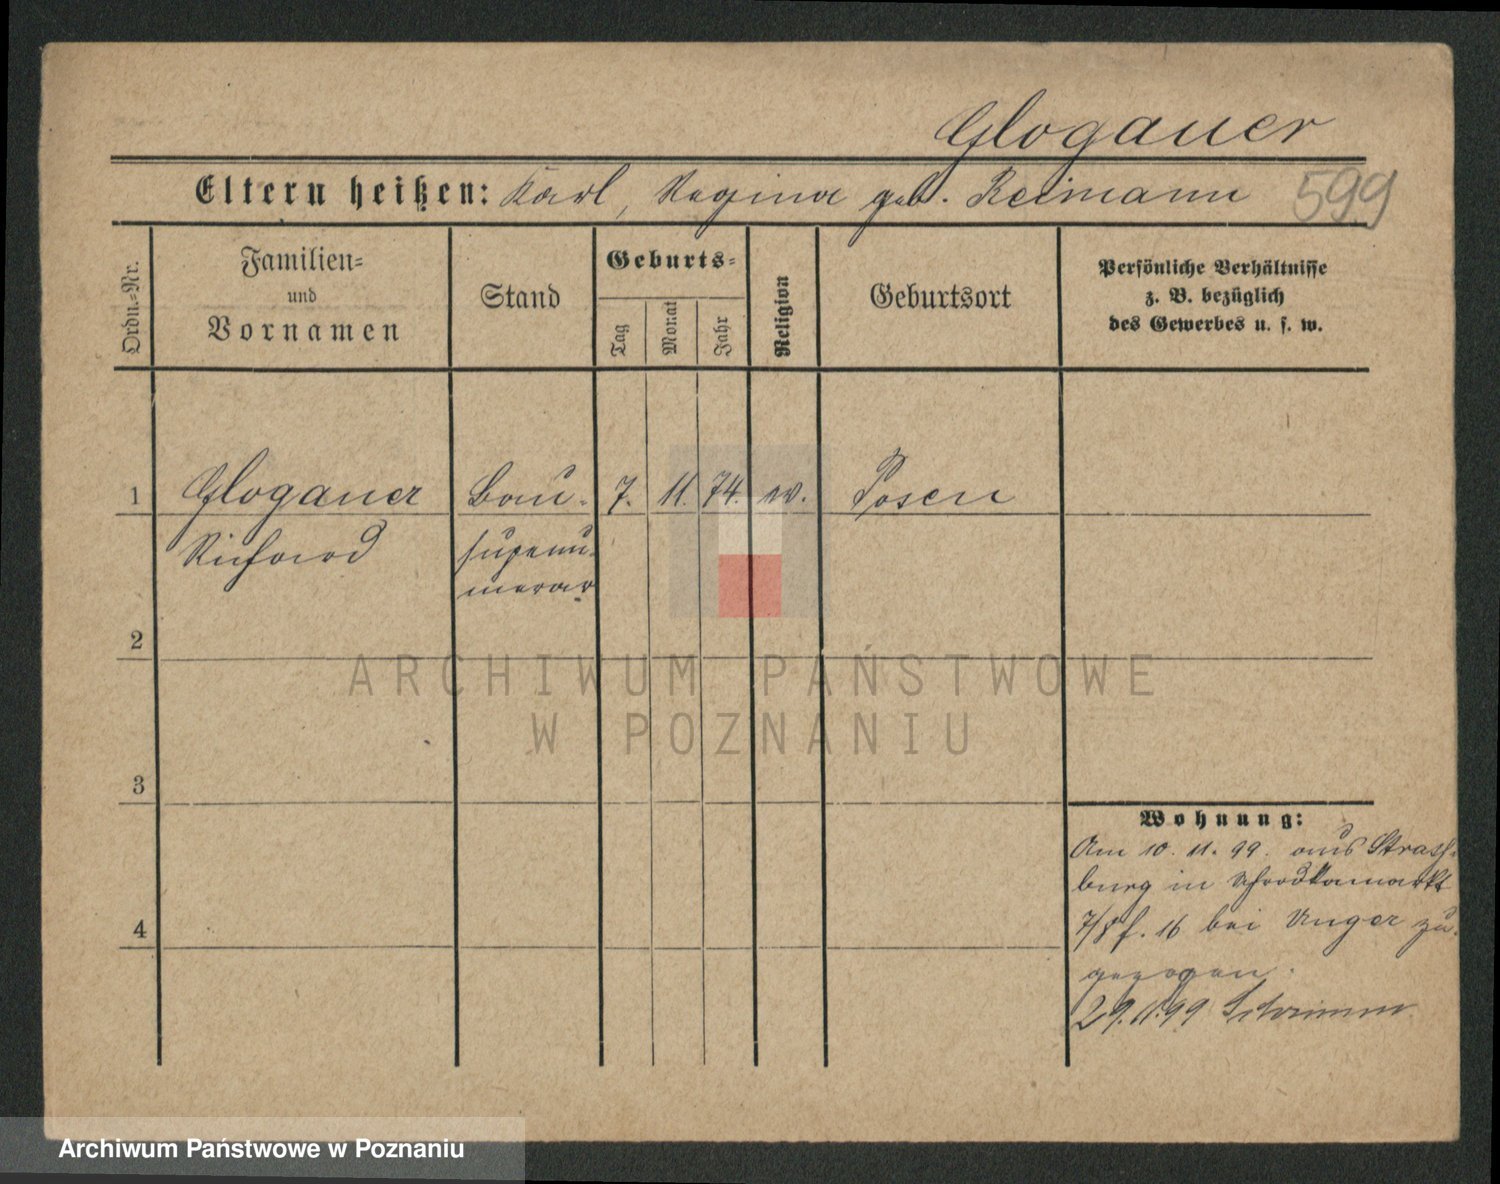 Glogauer
Eltern heißen: Karl, Regina geb. Reimann 599
Ordn.-Nr.
Familien-
und
Vornamen
Stand
Geburts-
Tag
Monat
Jahr
Religion
Geburtsort
Persönliche Verhältnisse
z. B. bezüglich
des Gewerbes u. s. w.
1 Glogauer Bau- 7. 11. 74. Posen
Richard supernu-
merar
2
3
4
Wohnung:
Am 10. 11. 99. aus Strass-
burg in Schrodkamarkt
7/8 f. 16 bei Unger zu-
gezogen.
29.11.99 Schrimm
ARCHIWUM PAŃSTWOWE
W POZNANIU
Archiwum Państwowe w Poznaniu